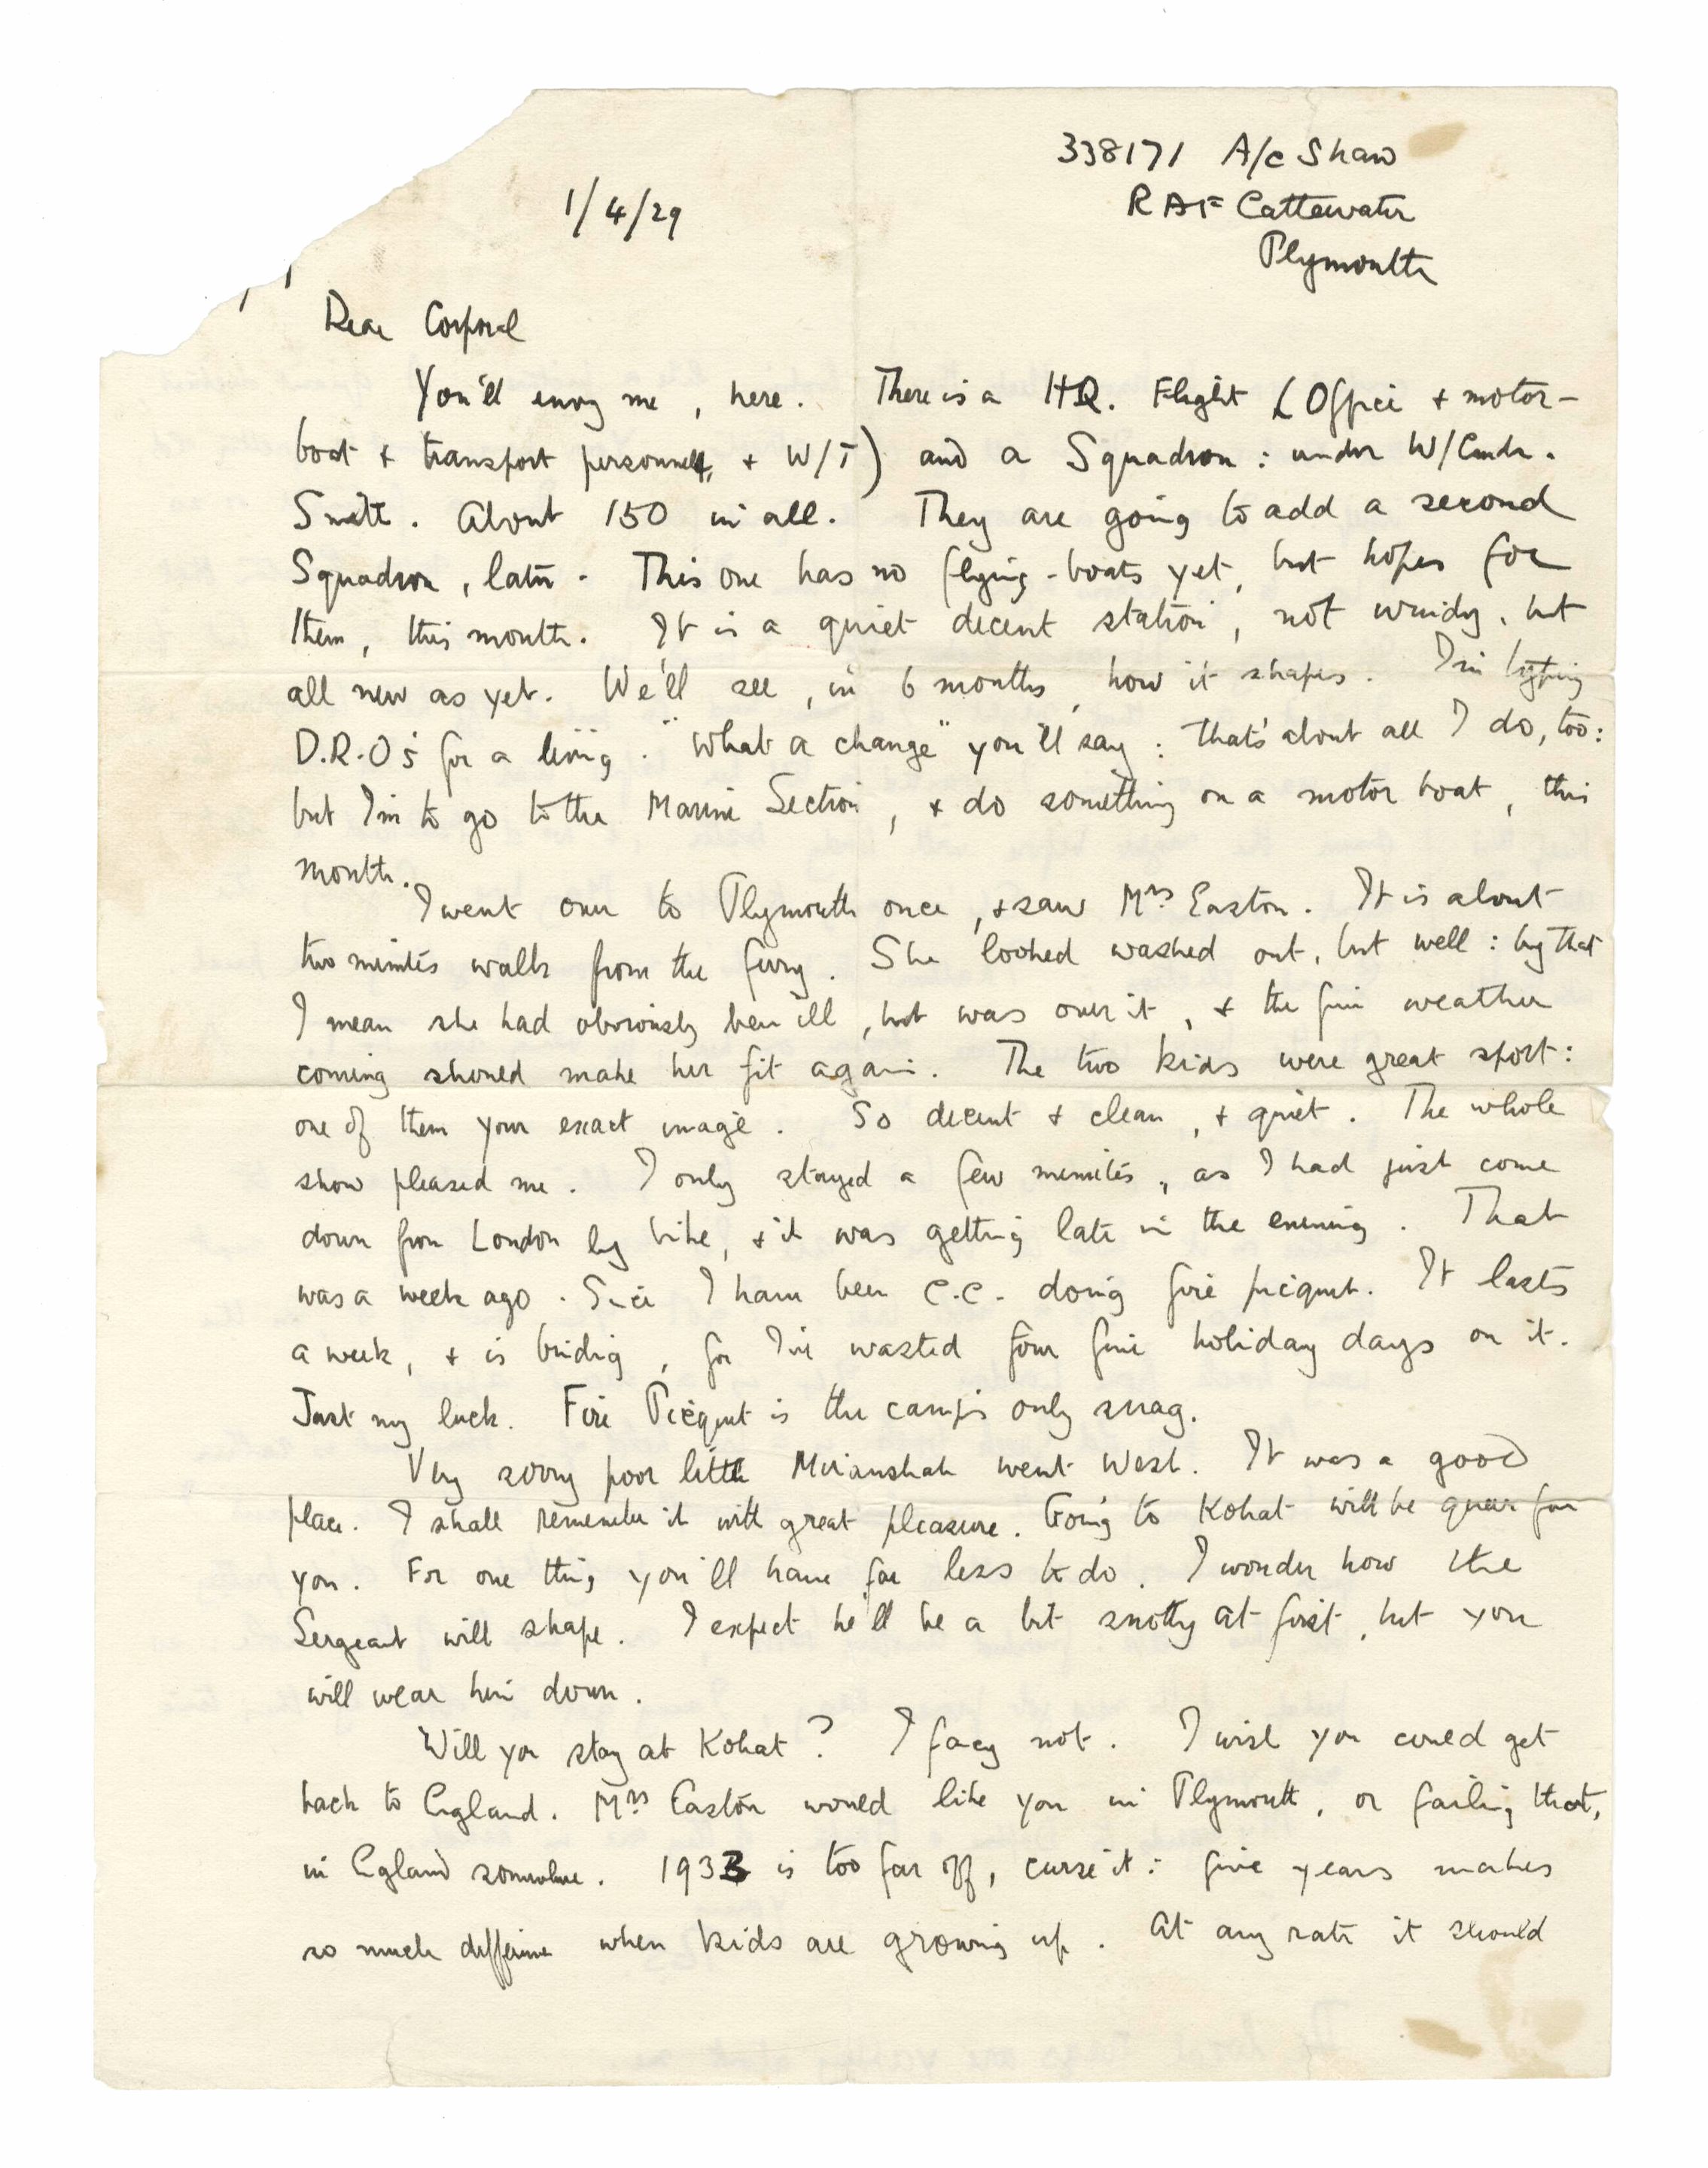 338171 A/c Shaw
RAF Cattewater
Plymouth
1/4/29
Dear Corporal
You'll envy me, here. There is a HQ. Flight (Office + motor-
boat + transport personnel, + W/T) and a Squadron: under W/Cmdr.
Smith. About 150 in all. They are going to add a second
Squadron, later. This one has no flying-boats yet, but hopes for
them, this month. It is a quiet decent station, not windy, but
all new as yet. We'll see, in 6 months, how it shapes. I'm typing
D.R.O's for a living. "What a change" you'll say: that's about all I do, too:
but I'm to go to the Marine Section, + do something on a motor boat, this
month.
I went over to Plymouth once, + saw Mrs Easton. It is about
two minutes walk from the ferry. She looked washed out, but well: by that
I mean she had obviously been ill, but was over it, + the fine weather
coming should make her fit again. The two kids were great sport:
one of them your exact image. So decent + clean, + quiet. The whole
show pleased me. I only stayed a few minutes, as I had just come
down from London by bike, + it was getting late in the evening. That
was a week ago. Since I have been C.C. doing fire picquet. It lasts
a week, + is binding, for I've wasted four fine holiday days on it.
Just my luck. Fire Picquet is the camp's only snag.
Very sorry poor little Miranshah went West. It was a good
place. I shall remember it with great pleasure. Going to Kohat will be queer for
you. For one thing you'll have far less to do. I wonder how the
Sergeant will shape. I expect he'll be a bit snotty at first, but you
will wear him down.
Will you stay at Kohat? I fancy not. I wish you could get
back to England. Mrs Easton would like you in Plymouth, or failing that,
in England somewhere. 1933 is too far off, curse it: five years makes
so much difference when kids are growing up. At any rate it should